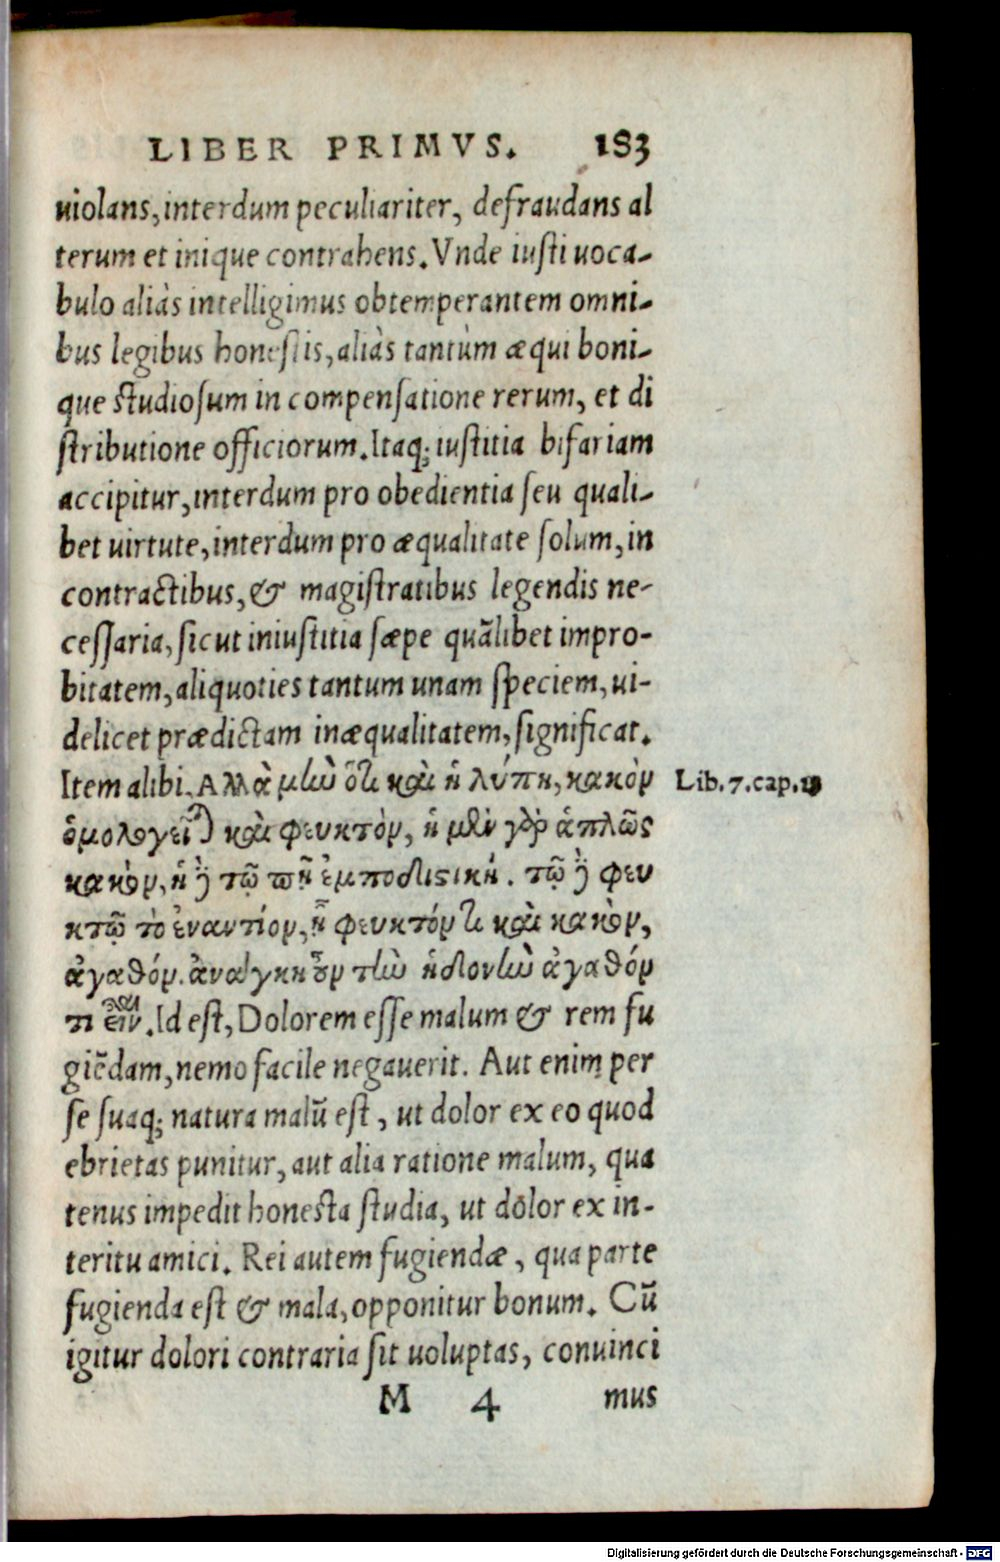 LIBER PRIMVS. 183
uiolans, interdum peculiariter, defraudans al
terum et inique contrahens. Vnde iusti uoca-
bulo aliàs intelligimus obtemperantem omni-
bus legibus honestis, aliàs tantùm æqui boni-
que studiosum in compensatione rerum, et di
stributione officiorum. Itaq; iustitia bifariam
accipitur, interdum pro obedientia seu quali-
bet uirtute, interdum pro æqualitate solum, in
contractibus, & magistratibus legendis ne-
cessaria, sicut iniustitia sæpe quãlibet impro-
bitatem, aliquoties tantum unam speciem, ui-
delicet prædictam inæqualitatem, significat.
Item alibi. Αλλὰ μὴν ὅτι καὶ ἡ λύπη, κακὸν
Lib. 7. cap. 13
ὁμολογεῖται καὶ φευκτὸν, ἡ μὲν γὰρ ἁπλῶς
κακὸν, ἡ δὲ τῷ πῆ ἐμποδιστική. τῷ δὲ φευ
κτῷ τὸ ἐναντίον, ᾗ φευκτόν τι καὶ κακὸν,
ἀγαθόν. ἀνάγκη οὖν τὴν ἡδονὴν ἀγαθόν
τι εἶναι. Id est, Dolorem esse malum & rem fu
giẽdam, nemo facile negauerit. Aut enim per
se suaq; natura malũ est, ut dolor ex eo quod
ebrietas punitur, aut alia ratione malum, qua
tenus impedit honesta studia, ut dolor ex in-
teritu amici. Rei autem fugiendæ, qua parte
fugienda est & mala, opponitur bonum. Cũ
igitur dolori contraria sit uoluptas, conuinci
M 4 mus
Digitalisierung gefördert durch die Deutsche Forschungsgemeinschaft - DFG